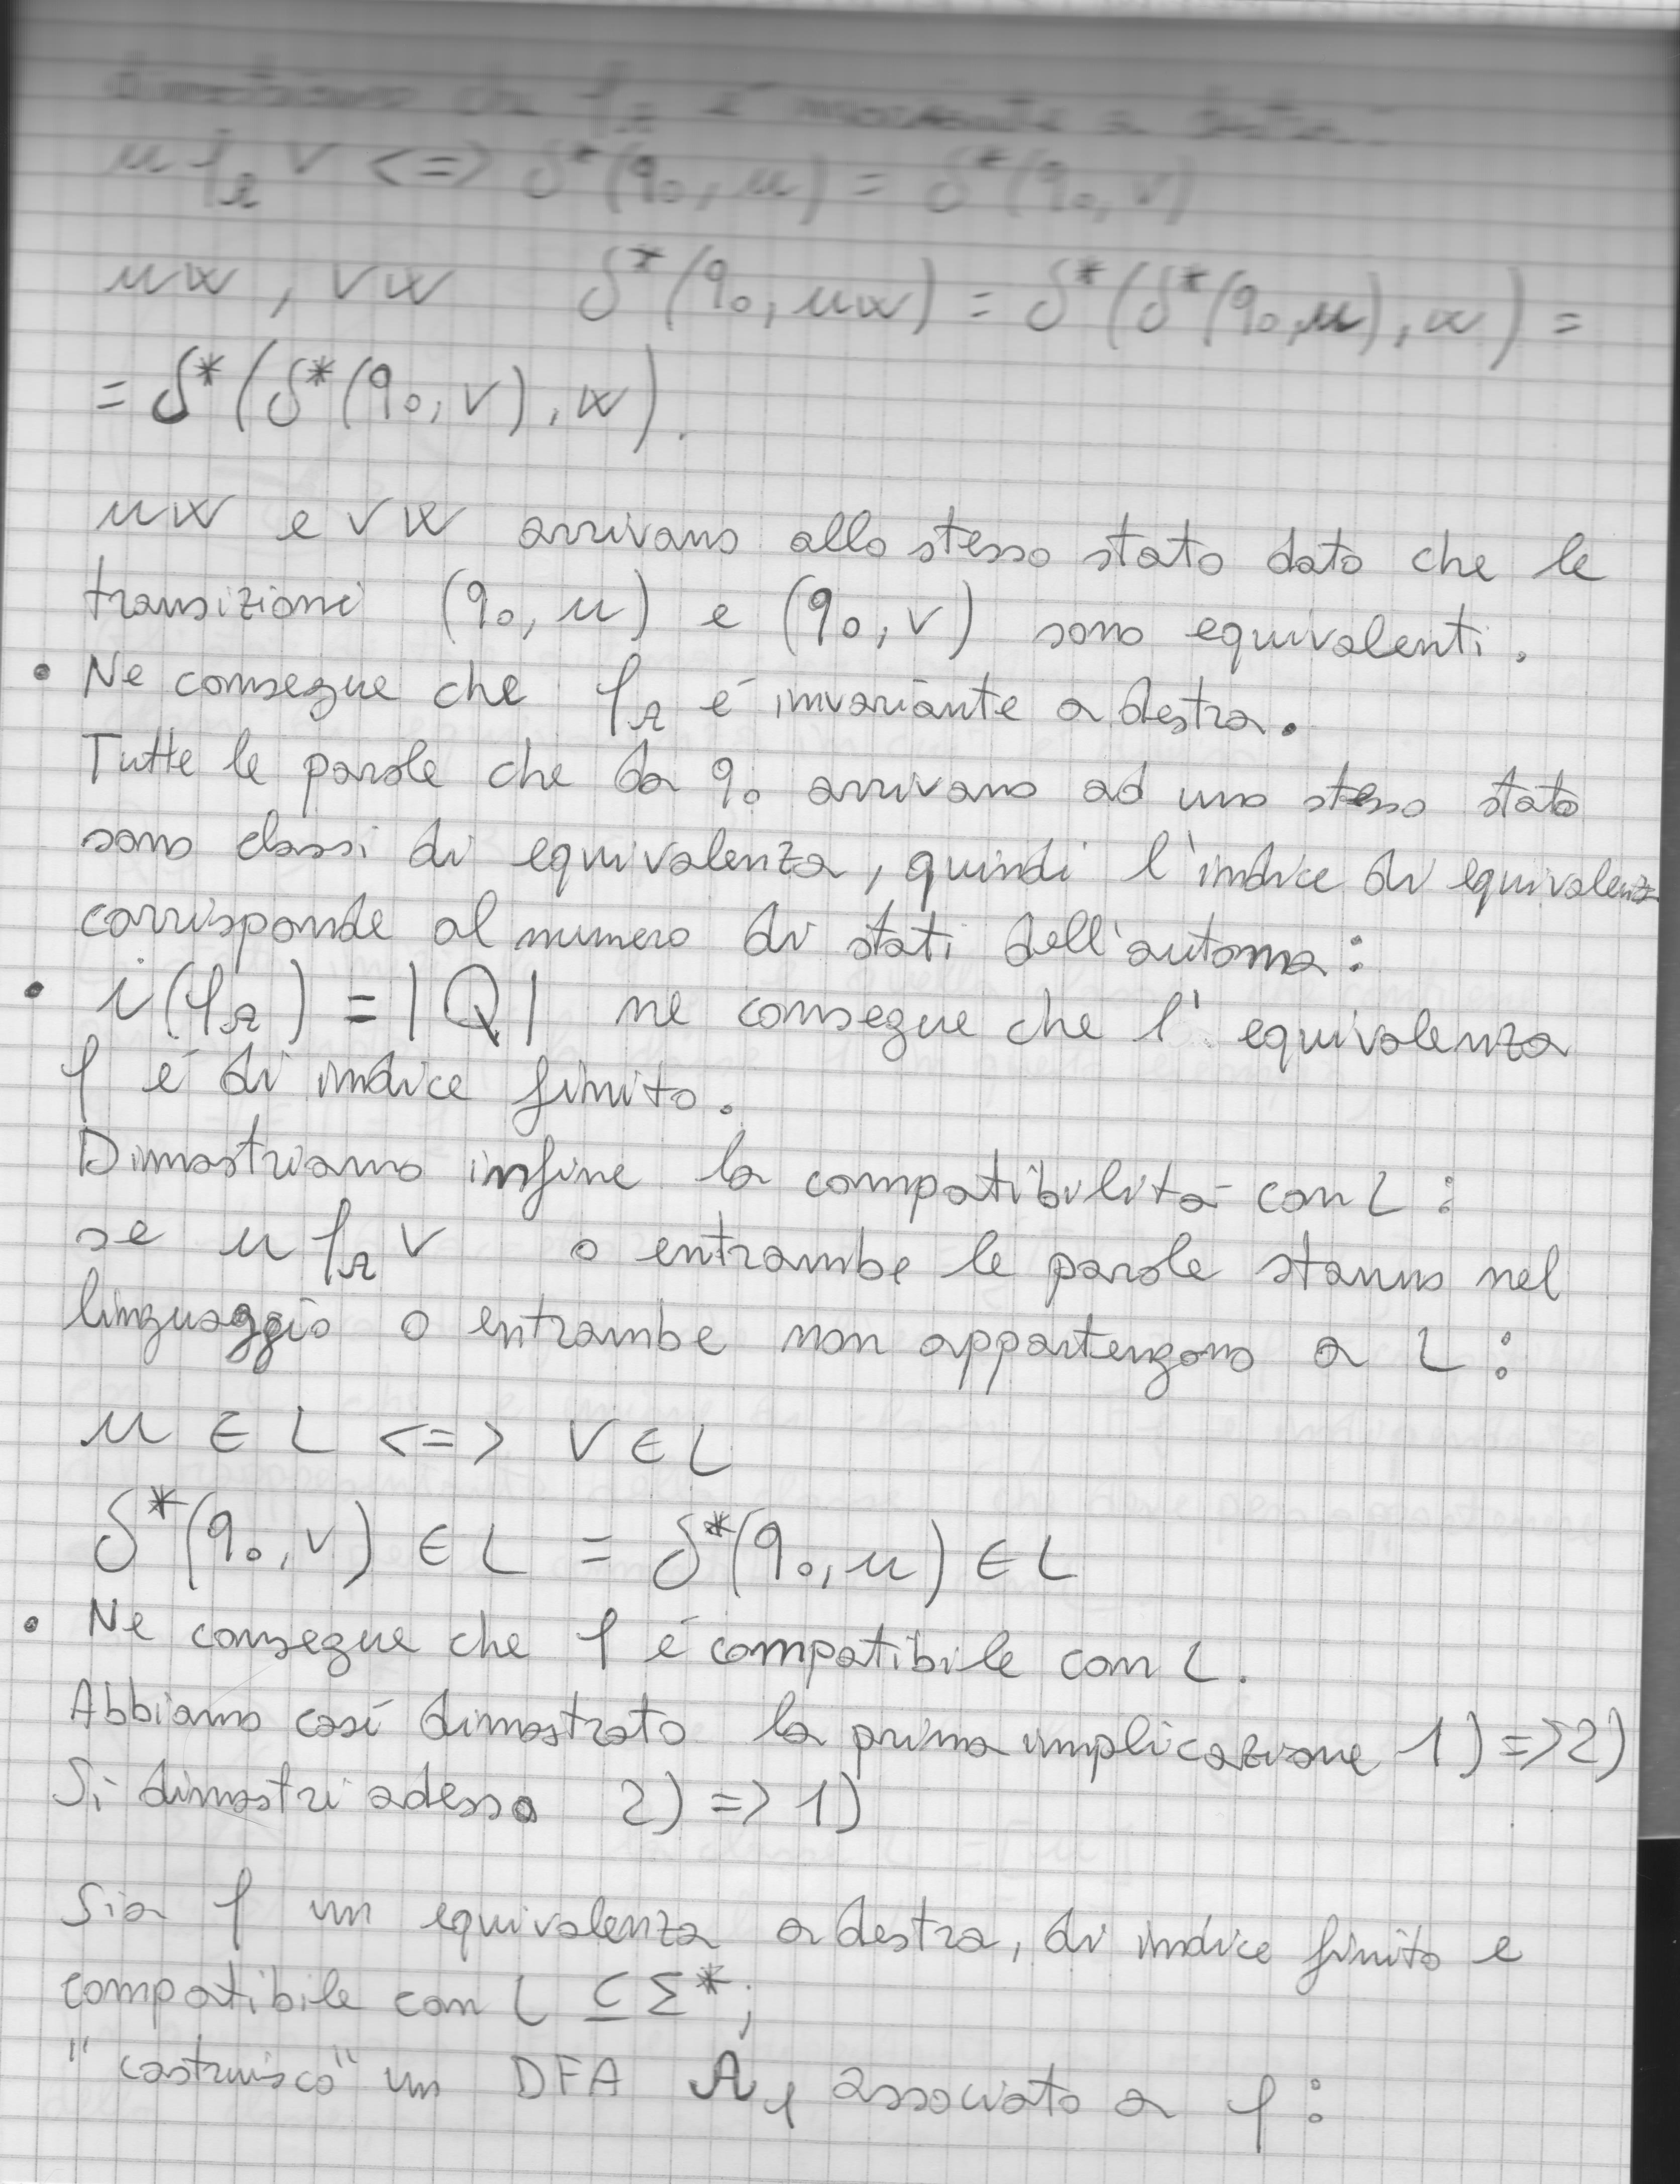 dimostriamo che ρ_A é invariante a destra:
u ρ_A v <=> δ*(q₀, u) = δ*(q₀, v)
uw, vw δ*(q₀, uw) = δ*(δ*(q₀, u), w) =
= δ*(δ*(q₀, v), w).
uw e vw arrivano allo stesso stato dato che le
transizioni (q₀, u) e (q₀, v) sono equivalenti.
• Ne consegue che ρ_A é invariante a destra.
Tutte le parole che da q₀ arrivano ad uno stesso stato
sono classi di equivalenza, quindi l'indice di equivalenza
corrisponde al numero di stati dell'automa:
• i(ρ_A) = |Q| ne consegue che l'equivalenza
ρ é di indice finito.
Dimostriamo infine la compatibilitá con L:
se u ρ_A v o entrambe le parole stanno nel
linguaggio o entrambe non appartengono a L:
u ∈ L <=> v ∈ L
δ*(q₀, v) ∈ L = δ*(q₀, u) ∈ L
• Ne consegue che ρ é compatibile con L.
Abbiamo cosí dimostrato la prima implicazione 1) => 2)
Si dimostri adesso 2) => 1)
Sia ρ un equivalenza a destra, di indice finito e
compatibile con L ⊆ Σ*;
"costruisco" un DFA A_ρ associato a ρ: